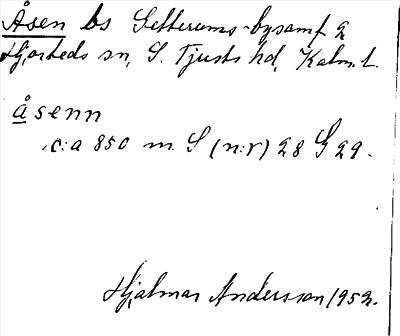 Åsen bs Setterums-bysamf 2
Hjorteds sn, S. Tjusts hd, Kalm. l.
åsenn
c:a 850 m S (n:r) 28 G 29.
Hjalmar Andersson 1952.